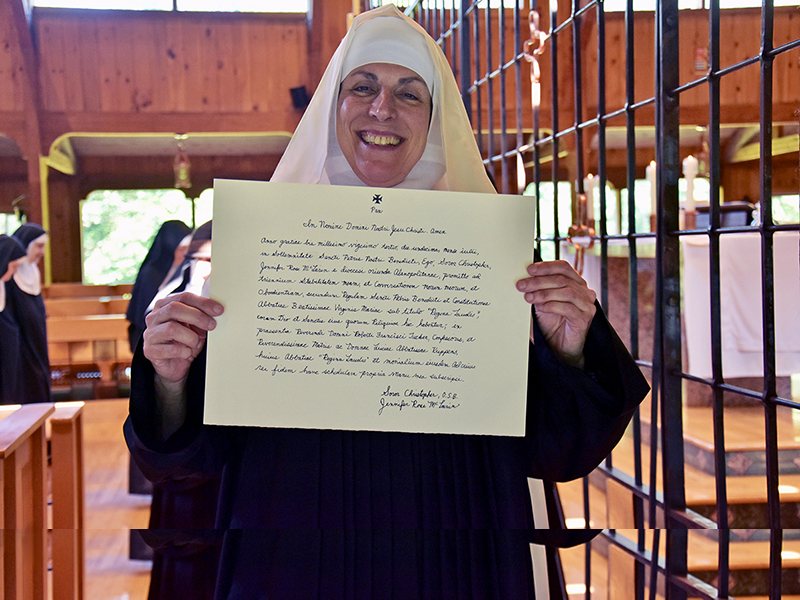 Pax
In Nomine Domini Nostri Jesu Christi. Amen.
Anno gratiae bis millesimo vigesimo tertio, die undecima, mense iulii,
in Solemnitate Sancti Patris Benedicti, Ego, Soror Christopher,
Jennifer Rose McLarin e diocesi oriunda, promitto ad
triennium Stabilitatem meam, et Conversionem Morum meorum, et
Obedientiam, secundum Regulam Sancti Patris Benedicti et Constitutiones
Abbatiae Beatissimae Virginis Mariae sub titulo "Regina Laudis",
coram Deo et Sanctis eius quorum Reliquiae hic habentur; in
praesentia Reverendi Domni Francisci Tucker, Confessoris, et
Reverendissimae Matris ac Dominae Luciae Abbatissae Kuppens,
huius Abbatiae "Regina Laudis" et monialium eiusdem.
rei fidem hanc schedulam propria Manu mea subscripsi.
Soror Christopher, O.S.B.
Jennifer Rose McLarin